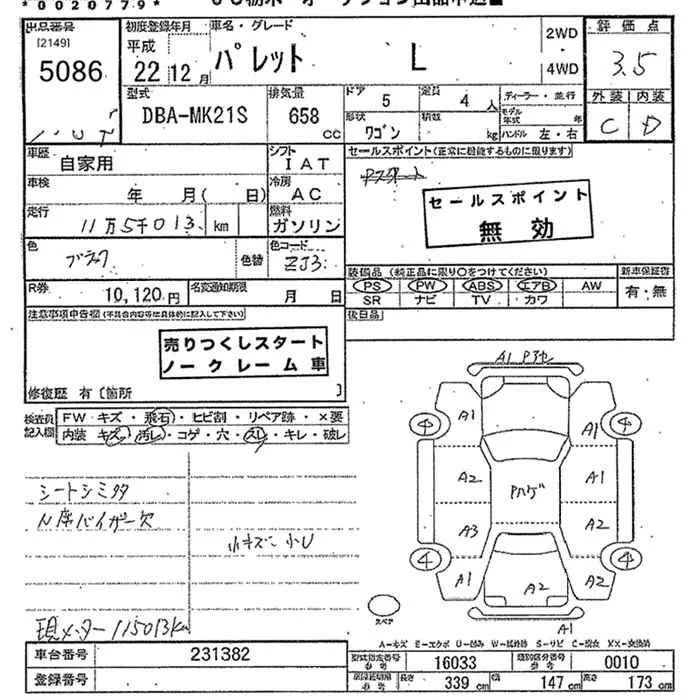 *0020779*
出品番号 [2149] 5086
初度登録年月 平成 22 12 月
車名・グレード パレット L
2WD
4WD
評価点 3.5
外装 内装
C D
型式 DBA-MK21S
排気量 658 cc
ドア 5
定員 4 人
形状 ワゴン
積載 kg
ディーラー・並行
モデル年式 年
ハンドル 左・右
車歴 自家用
シフト IAT
車検 年 月( 日)
冷房 AC
走行 11万5千013 km
燃料 ガソリン
色 ブラック
色替
色コード ZJ3
R券 10,120円
名変通知期限 月 日
セールスポイント(正常に機能するものに限ります)
セールスポイント
無効
装備品(純正品に限り○をつけてください)
新車保証書
PS PW ABS エアB AW
有・無
SR ナビ TV カワ
後日品
注意事項申告欄(不具合内容等は具体的に記入して下さい)
売りつくしスタート
ノークレーム車
修復歴 有〔箇所 〕
検査員記入欄
FW キズ・飛石・ヒビ割・リペア跡・×要
内装 キズ・汚レ・コゲ・穴・スレ・キレ・破レ
シートシミタタ
N席バイザー欠
小キズ 小U
現メーター 115013km
A1
A1
A1
4
4
A2
A1
Pハゲ
A3
A2
4
4
A1
A2
A1
A1
スペア
A=キズ E=エクボ U=凹み W=補修跡 S=サビ C=腐食 XX=交換済
車台番号 231382
登録番号
型式指定番号 参考 16033
類別区分番号 参考 0010
長さ 339 cm
幅 147 cm
高さ 173 cm